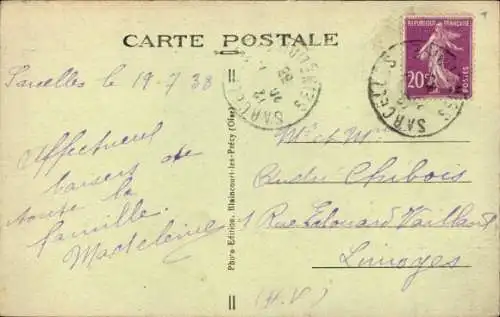 CARTE POSTALE
Sarcelles le 19-7 38
Affectueux
baisers de
toute la
famille.
Madeleine
Photo-Edition, Blaincourt-les-Précy (Oise)
REPUBLIQUE FRANÇAISE
20c
POSTES
SARCELLES
SARCELLES
Mr et Mme
André Chibois
Rue Edouard Vaillant
Limoges
(H.V)